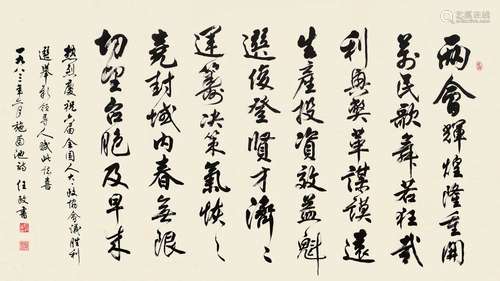 两會輝煌隆重開
萬民歌舞若狂哉
利興弊革謀謨遠
生產投資效益魁
選俊登賢才濟濟
運籌决策氣恢恢
堯封城内春無限
切望台胞及早来
熱烈慶祝六届全國人大政協會議勝利
選舉新領導人賦此誌喜
一九八三年六月施南池詩 任政書